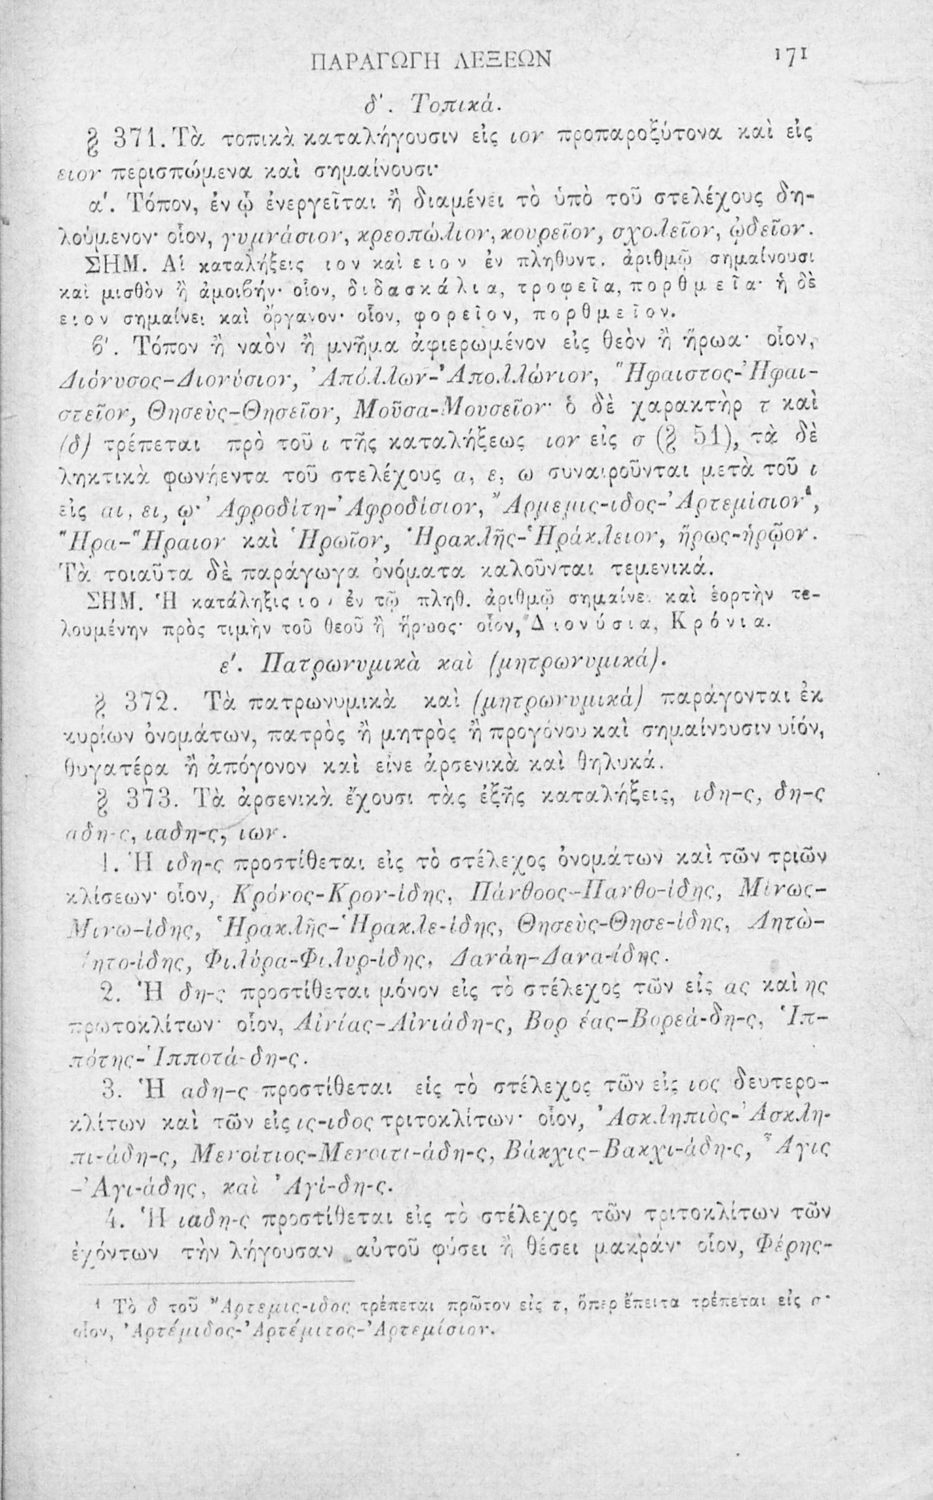 ΠΑΡΑΓΩΓΗ ΛΕΞΕΩΝ 171
δʹ. Τοπικά.
§ 371. Τὰ τοπικὰ καταλήγουσιν εἰς ιον προπαροξύτονα καὶ εἰς
ειον περισπώμενα καὶ σημαίνουσι·
αʹ. Τόπον, ἐν ᾧ ἐνεργεῖται ἢ διαμένει τὸ ὑπὸ τοῦ στελέχους δη-
λούμενον· οἷον, γυμνάσιον, κρεοπώλιον, κουρεῖον, σχολεῖον, ᾠδεῖον.
ΣΗΜ. Αἱ καταλήξεις ιον καὶ ειον ἐν πληθυντ. ἀριθμῷ σημαίνουσι
καὶ μισθὸν ἢ ἀμοιβήν· οἷον, διδασκάλια, τροφεῖα, πορθμεῖα· ἡ δὲ
ειον σημαίνει καὶ ὄργανον· οἷον, φορεῖον, πορθμεῖον.
ϐʹ. Τόπον ἢ ναὸν ἢ μνῆμα ἀφιερωμένον εἰς θεὸν ἢ ἥρωα· οἷον,
Διόνυσος-Διονύσιον, Ἀπόλλων-Ἀπολλώνιον, Ἥφαιστος-Ἡφαι-
στεῖον, Θησεὺς-Θησεῖον, Μοῦσα-Μουσεῖον· ὁ δὲ χαρακτὴρ τ καὶ
(δ) τρέπεται πρὸ τοῦ ι τῆς καταλήξεως ιον εἰς σ (§ 51), τὰ δὲ
ληκτικὰ φωνήεντα τοῦ στελέχους α, ε, ω συναιροῦνται μετὰ τοῦ ι
εἰς αι, ει, ῳ· Ἀφροδίτη-Ἀφροδίσιον, Ἄρμεμις-ιδος-Ἀρτεμίσιον¹,
Ἥρα-Ἥραιον καὶ Ἡρωῖον, Ἡρακλῆς-Ἡράκλειον, ἥρως-ἡρῷον.
Τὰ τοιαῦτα δὲ παράγωγα ὀνόματα καλοῦνται τεμενικά.
ΣΗΜ. Ἡ κατάληξις ιον ἐν τῷ πληθ. ἀριθμῷ σημαίνει καὶ ἑορτὴν τε-
λουμένην πρὸς τιμὴν τοῦ θεοῦ ἢ ἥρωος· οἷον, Διονύσια, Κρόνια.
εʹ. Πατρωνυμικὰ καὶ (μητρωνυμικά).
§ 372. Τὰ πατρωνυμικὰ καὶ (μητρωνυμικά) παράγονται ἐκ
κυρίων ὀνομάτων, πατρὸς ἢ μητρὸς ἢ προγόνου καὶ σημαίνουσιν υἱόν,
θυγατέρα ἢ ἀπόγονον καὶ εἶνε ἀρσενικὰ καὶ θηλυκά.
§ 373. Τὰ ἀρσενικὰ ἔχουσι τὰς ἑξῆς καταλήξεις, ιδη-ς, δη-ς
αδη-ς, ιαδη-ς, ιων.
1. Ἡ ιδη-ς προστίθεται εἰς τὸ στέλεχος ὀνομάτων καὶ τῶν τριῶν
κλίσεων· οἷον, Κρόνος-Κρον-ίδης, Πάνθοος-Πανθο-ίδης, Μίνως-
Μινω-ίδης, Ἡρακλῆς-Ἡρακλε-ίδης, Θησεὺς-Θησε-ίδης, Λητὼ-
Λητο-ίδης, Φιλύρα-Φιλυρ-ίδης, Δανάη-Δανα-ίδης.
2. Ἡ δη-ς προστίθεται μόνον εἰς τὸ στέλεχος τῶν εἰς ας καὶ ης
πρωτοκλίτων· οἷον, Αἰνίας-Αἰνιάδη-ς, Βορέας-Βορεά-δη-ς, Ἱπ-
πότης-Ἱπποτά-δη-ς.
3. Ἡ αδη-ς προστίθεται εἰς τὸ στέλεχος τῶν εἰς ιος δευτερο-
κλίτων καὶ τῶν εἰς ις-ιδος τριτοκλίτων· οἷον, Ἀσκληπιὸς-Ἀσκλη-
πι-άδη-ς, Μενοίτιος-Μενοιτι-άδη-ς, Βάκχις-Βακχι-άδη-ς, Ἆγις
-Ἀγι-άδης, καὶ Ἀγί-δη-ς.
4. Ἡ ιαδη-ς προστίθεται εἰς τὸ στέλεχος τῶν τριτοκλίτων τῶν
ἐχόντων τὴν λήγουσαν αὐτοῦ φύσει ἢ θέσει μακράν· οἷον, Φέρης-
¹ Τὸ δ τοῦ Ἄρτεμις-ιδος τρέπεται πρῶτον εἰς τ, ὅπερ ἔπειτα τρέπεται εἰς σ·
οἷον, Ἀρτέμιδος-Ἀρτέμιτος-Ἀρτεμίσιον.